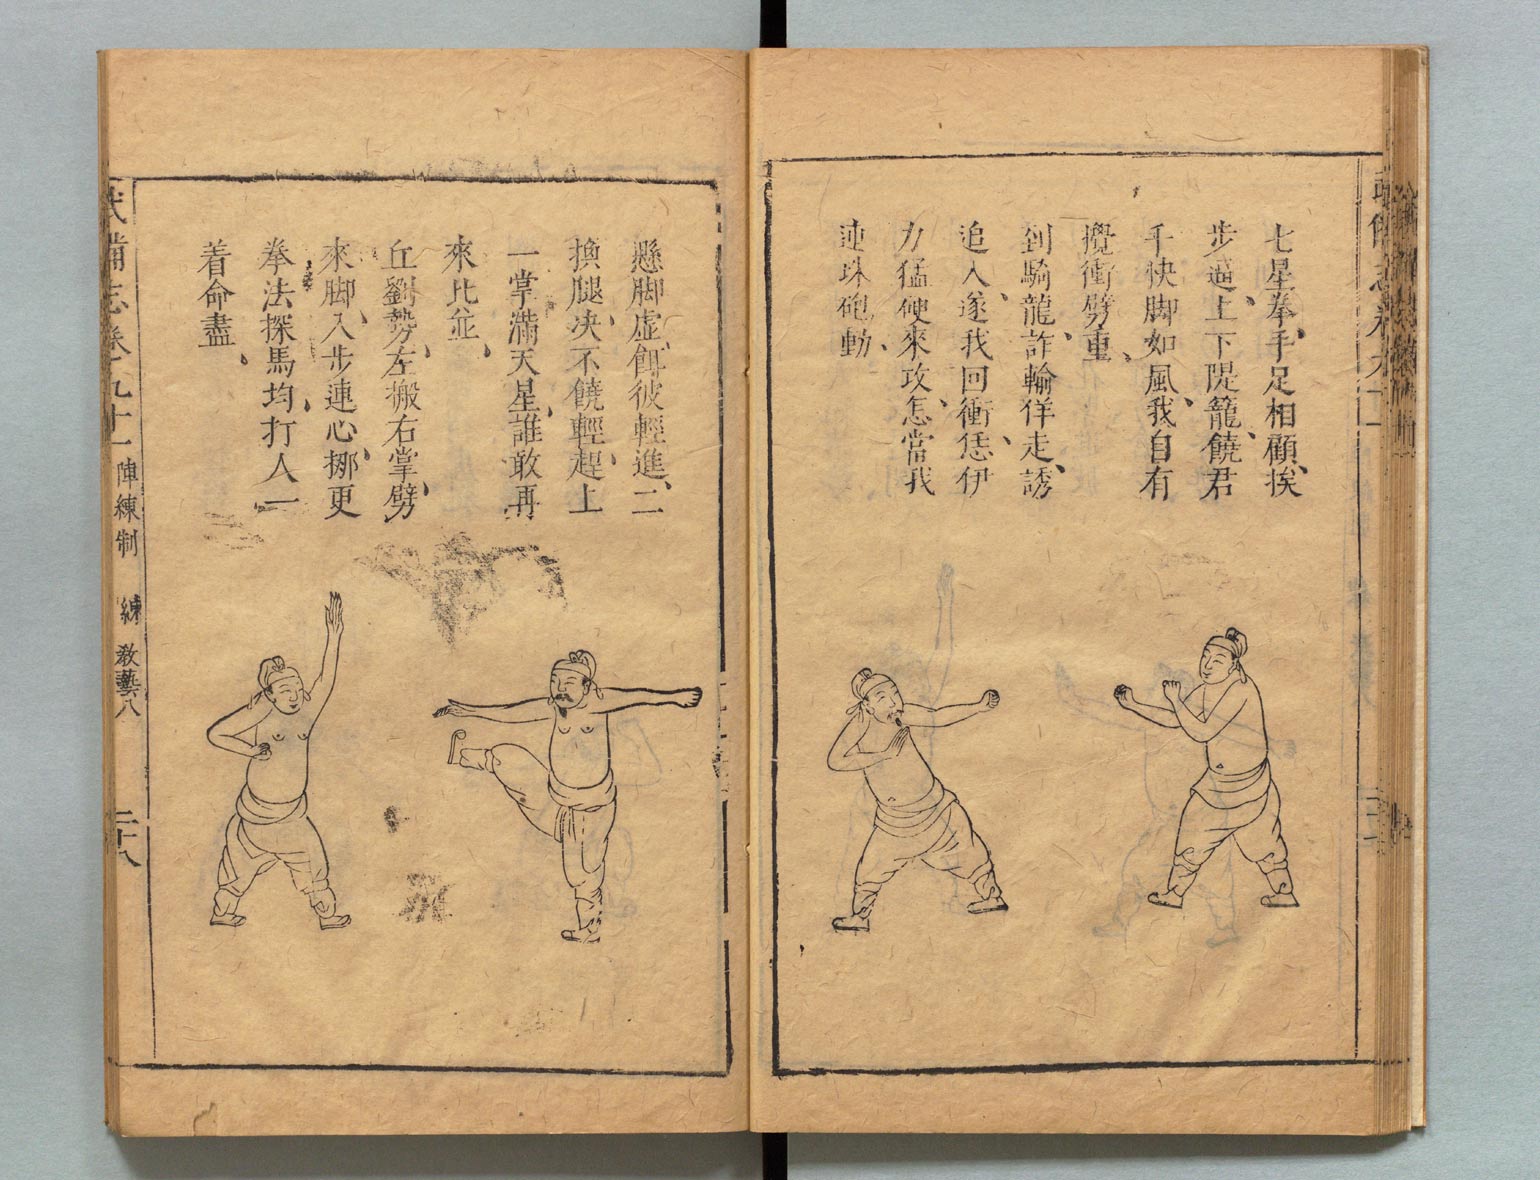 七星拳、手足相顧、挨
步逼、上下隄籠、饒君
手快脚如風、我自有
攪衝劈重、
到騎龍、詐輸佯走、誘
追入、遂我回衝、恁伊
力猛硬來攻、怎當我
連珠砲動、
懸脚虛、餌彼輕進、二
換腿、决不饒輕、趕上
一掌滿天星、誰敢再
來比並、
丘劉勢、左搬右掌、劈
來脚、入步連心、挪更
拳法探馬均、打人一
着命盡、
武備志卷九十一 陣練制 練 教藝八 二十八